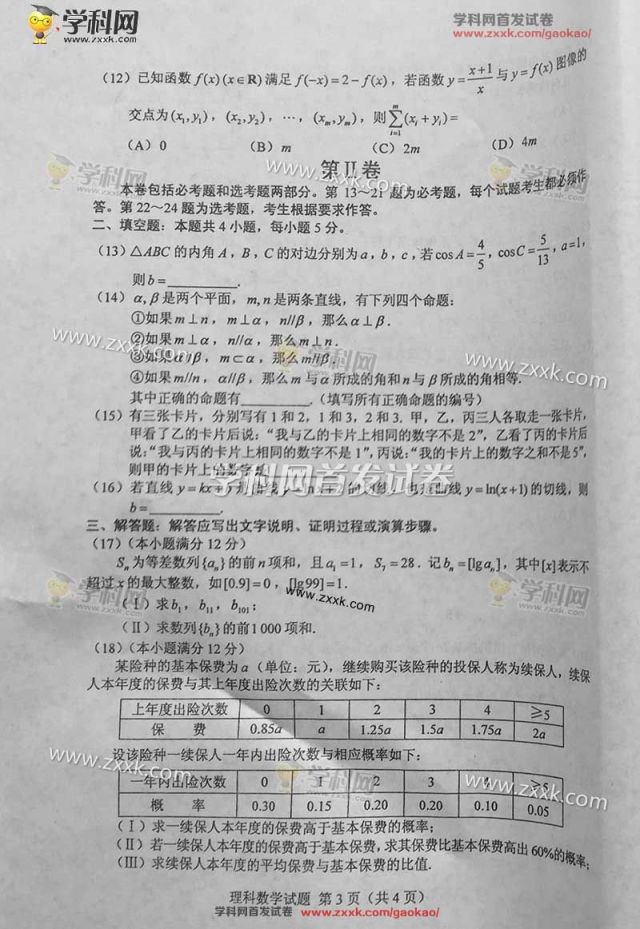 学科网
www.zxxk.com
学科网首发试卷
zxxk.com/gaokao/
(12) 已知函数 f(x)(x∈R) 满足 f(−x)=2−f(x)，若函数 y=(x+1)/x 与 y=f(x) 图像的
交点为 (x₁,y₁)，(x₂,y₂)，⋯，(xₘ,yₘ)，则 ∑ᵢ₌₁ᵐ(xᵢ+yᵢ)=
(A) 0 (B) m (C) 2m (D) 4m
第II卷
本卷包括必考题和选考题两部分。第 13～21 题为必考题，每个试题考生都必须作
答。第 22～24 题为选考题，考生根据要求作答。
二、填空题：本题共 4 小题，每小题 5 分。
(13) △ABC 的内角 A，B，C 的对边分别为 a，b，c，若 cos A=4/5，cos C=5/13，a=1，
则 b=________.
(14) α,β 是两个平面，m,n 是两条直线，有下列四个命题：
①如果 m⊥n，m⊥α，n//β，那么 α⊥β.
②如果 m⊥α，n//α，那么 m⊥n.
③如果 α//β，m⊂α，那么 m//β.
④如果 m//n，α//β，那么 m 与 α 所成的角和 n 与 β 所成的角相等.
其中正确的命题有________. (填写所有正确命题的编号)
(15) 有三张卡片，分别写有 1 和 2，1 和 3，2 和 3. 甲，乙，丙三人各取走一张卡片，
甲看了乙的卡片后说：“我与乙的卡片上相同的数字不是 2”，乙看了丙的卡片后
说：“我与丙的卡片上相同的数字不是 1”，丙说：“我的卡片上的数字之和不是 5”，
则甲的卡片上的数字
(16) 若直线 y=kx+b 线 y= 线 y=ln(x+1) 的切线，则
b=________.
学科网首发试卷
三、解答题：解答应写出文字说明、证明过程或演算步骤。
(17) (本小题满分 12 分)
Sₙ 为等差数列{aₙ}的前 n 项和，且 a₁=1，S₇=28. 记 bₙ=[lg aₙ]，其中[x]表示不
超过 x 的最大整数，如 [0.9]=0，[lg99]=1.
(Ⅰ) 求 b₁，b₁₁，b₁₀₁；
(Ⅱ) 求数列{bₙ}的前 1 000 项和.
(18) (本小题满分 12 分)
某险种的基本保费为 a (单位：元)，继续购买该险种的投保人称为续保人，续保
人本年度的保费与其上年度出险次数的关联如下：
上年度出险次数 0 1 2 3 4 ≥5
保 费 0.85a a 1.25a 1.5a 1.75a 2a
设该险种一续保人一年内出险次数与相应概率如下：
一年内出险次数 0 1 2 3 4 ≥5
概 率 0.30 0.15 0.20 0.20 0.10 0.05
(Ⅰ) 求一续保人本年度的保费高于基本保费的概率；
(Ⅱ) 若一续保人本年度的保费高于基本保费，求其保费比基本保费高出 60%的概率；
(Ⅲ) 求续保人本年度的平均保费与基本保费的比值.
理科数学试题 第 3 页 (共 4 页)
学科网首发试卷 www.zxxk.com/gaokao/